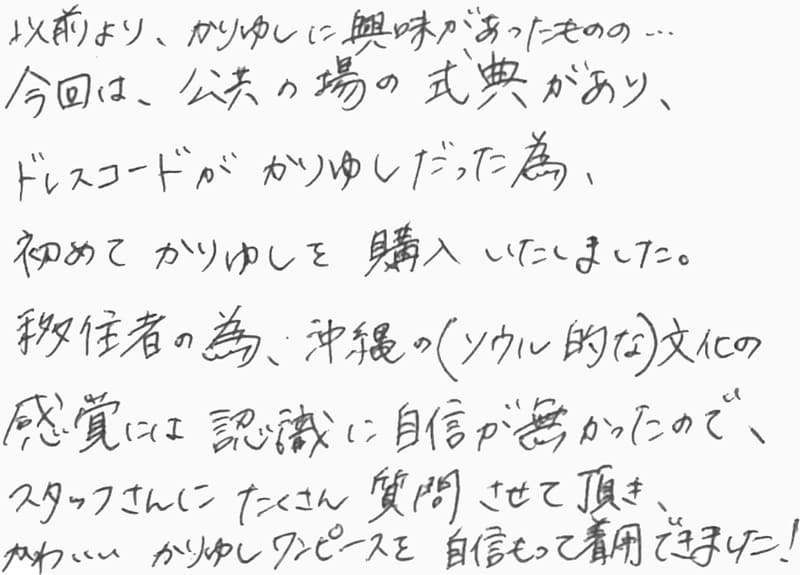 以前より、かりゆしに興味があったものの…
今回は、公共の場の式典があり、
ドレスコードが かりゆしだった為、
初めて かりゆしを 購入 いたしました。
移住者の為、沖縄の(ソウル的な)文化の
感覚には 認識に自信が無かったので、
スタッフさんに たくさん 質問 させて頂き、
かわいい かりゆしワンピースを 自信もって着用できました!